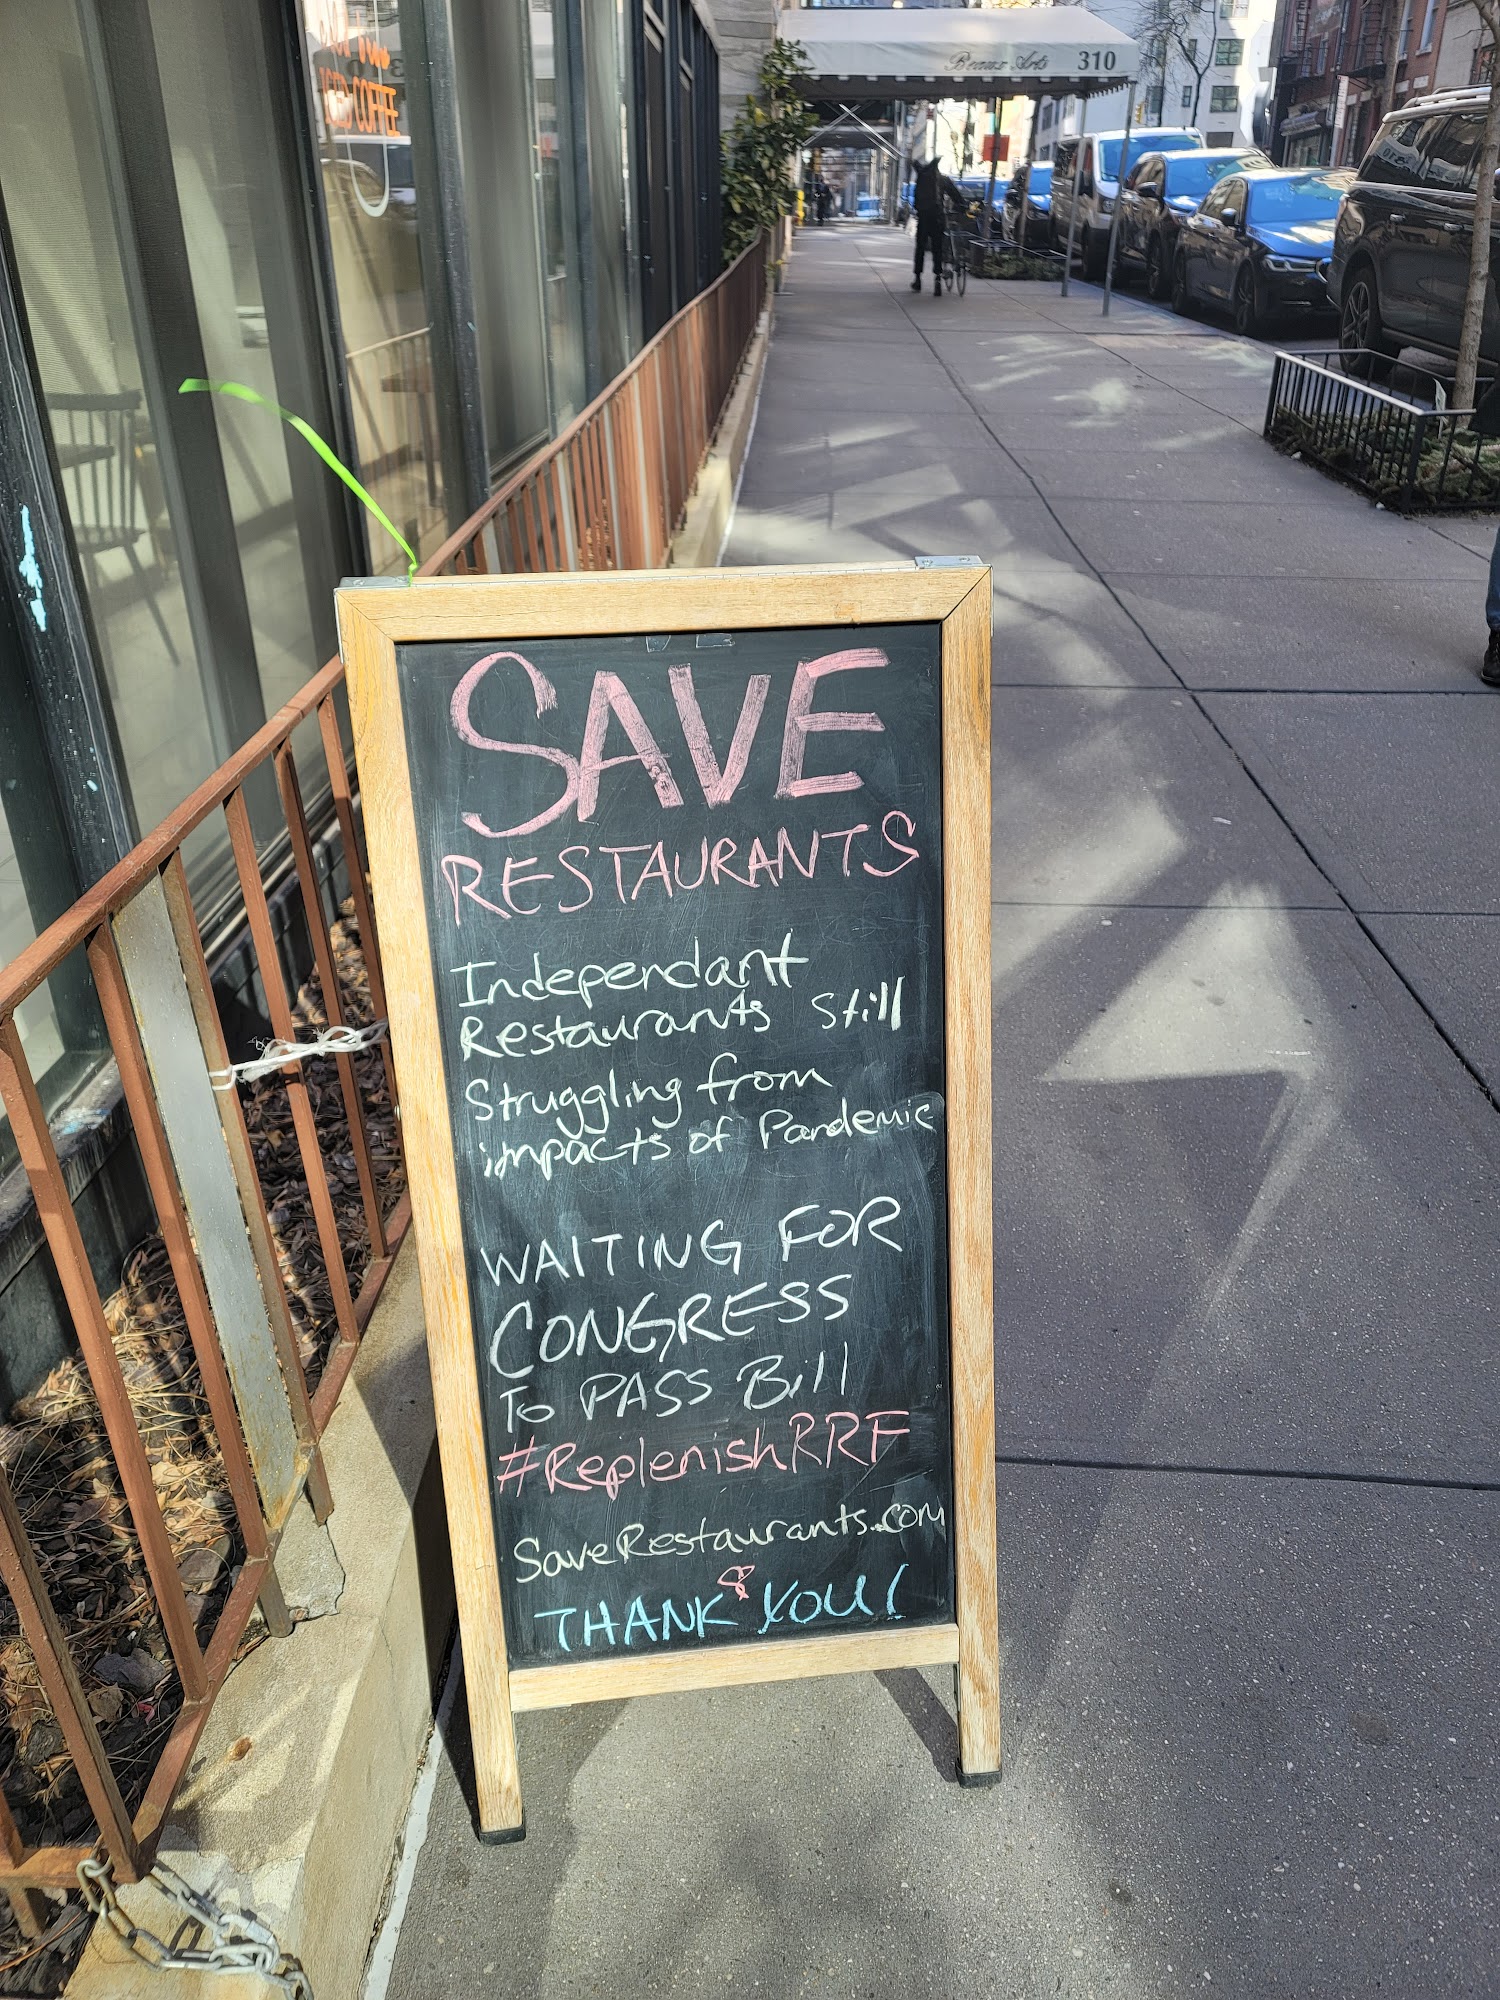 ICED COFFEE
Beaux Arts 310
SAVE
RESTAURANTS
Independant
Restaurants Still
Struggling from
impacts of Pandemic
WAITING FOR
CONGRESS
To PASS Bill
#ReplenishRRF
SaveRestaurants.com
THANK YOU!